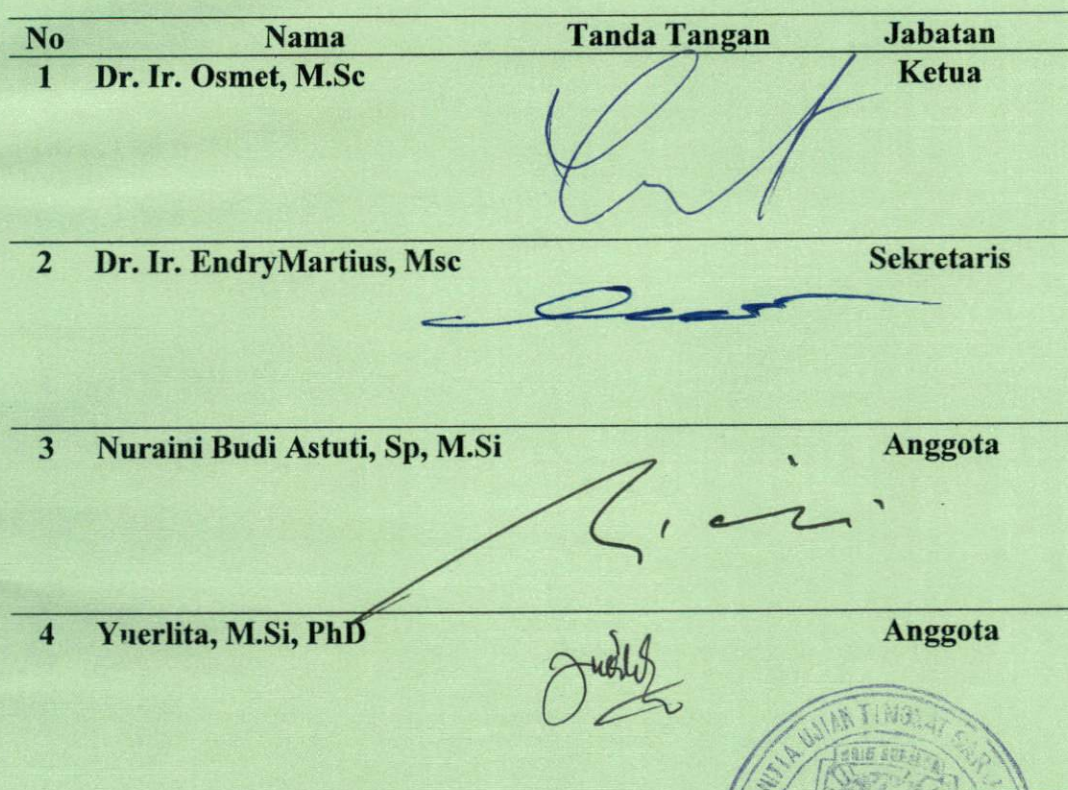 No Nama Tanda Tangan Jabatan
1 Dr. Ir. Osmet, M.Sc Ketua
2 Dr. Ir. EndryMartius, Msc Sekretaris
3 Nuraini Budi Astuti, Sp, M.Si Anggota
4 Yuerlita, M.Si, PhD Anggota
UJIAN TINGKAT